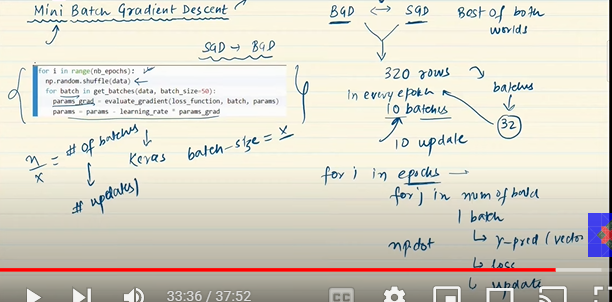 Mini Batch Gradient Descent
SGD → BGD
for i in range(nb_epochs):
np.random.shuffle(data)
for batch in get_batches(data, batch_size=50):
params_grad = evaluate_gradient(loss_function, batch, params)
params = params - learning_rate * params_grad
n/x = # of batches
# updates
Keras batch-size = x
BGD ↔ SGD Best of both
worlds
320 rows
batches
in every epoch
10 batches
32
10 update
for i in epochs →
for j in num of batch
1 batch
np.dot
↳ y-pred (vector
↳ loss
↳ update
33:36 / 37:52
CC